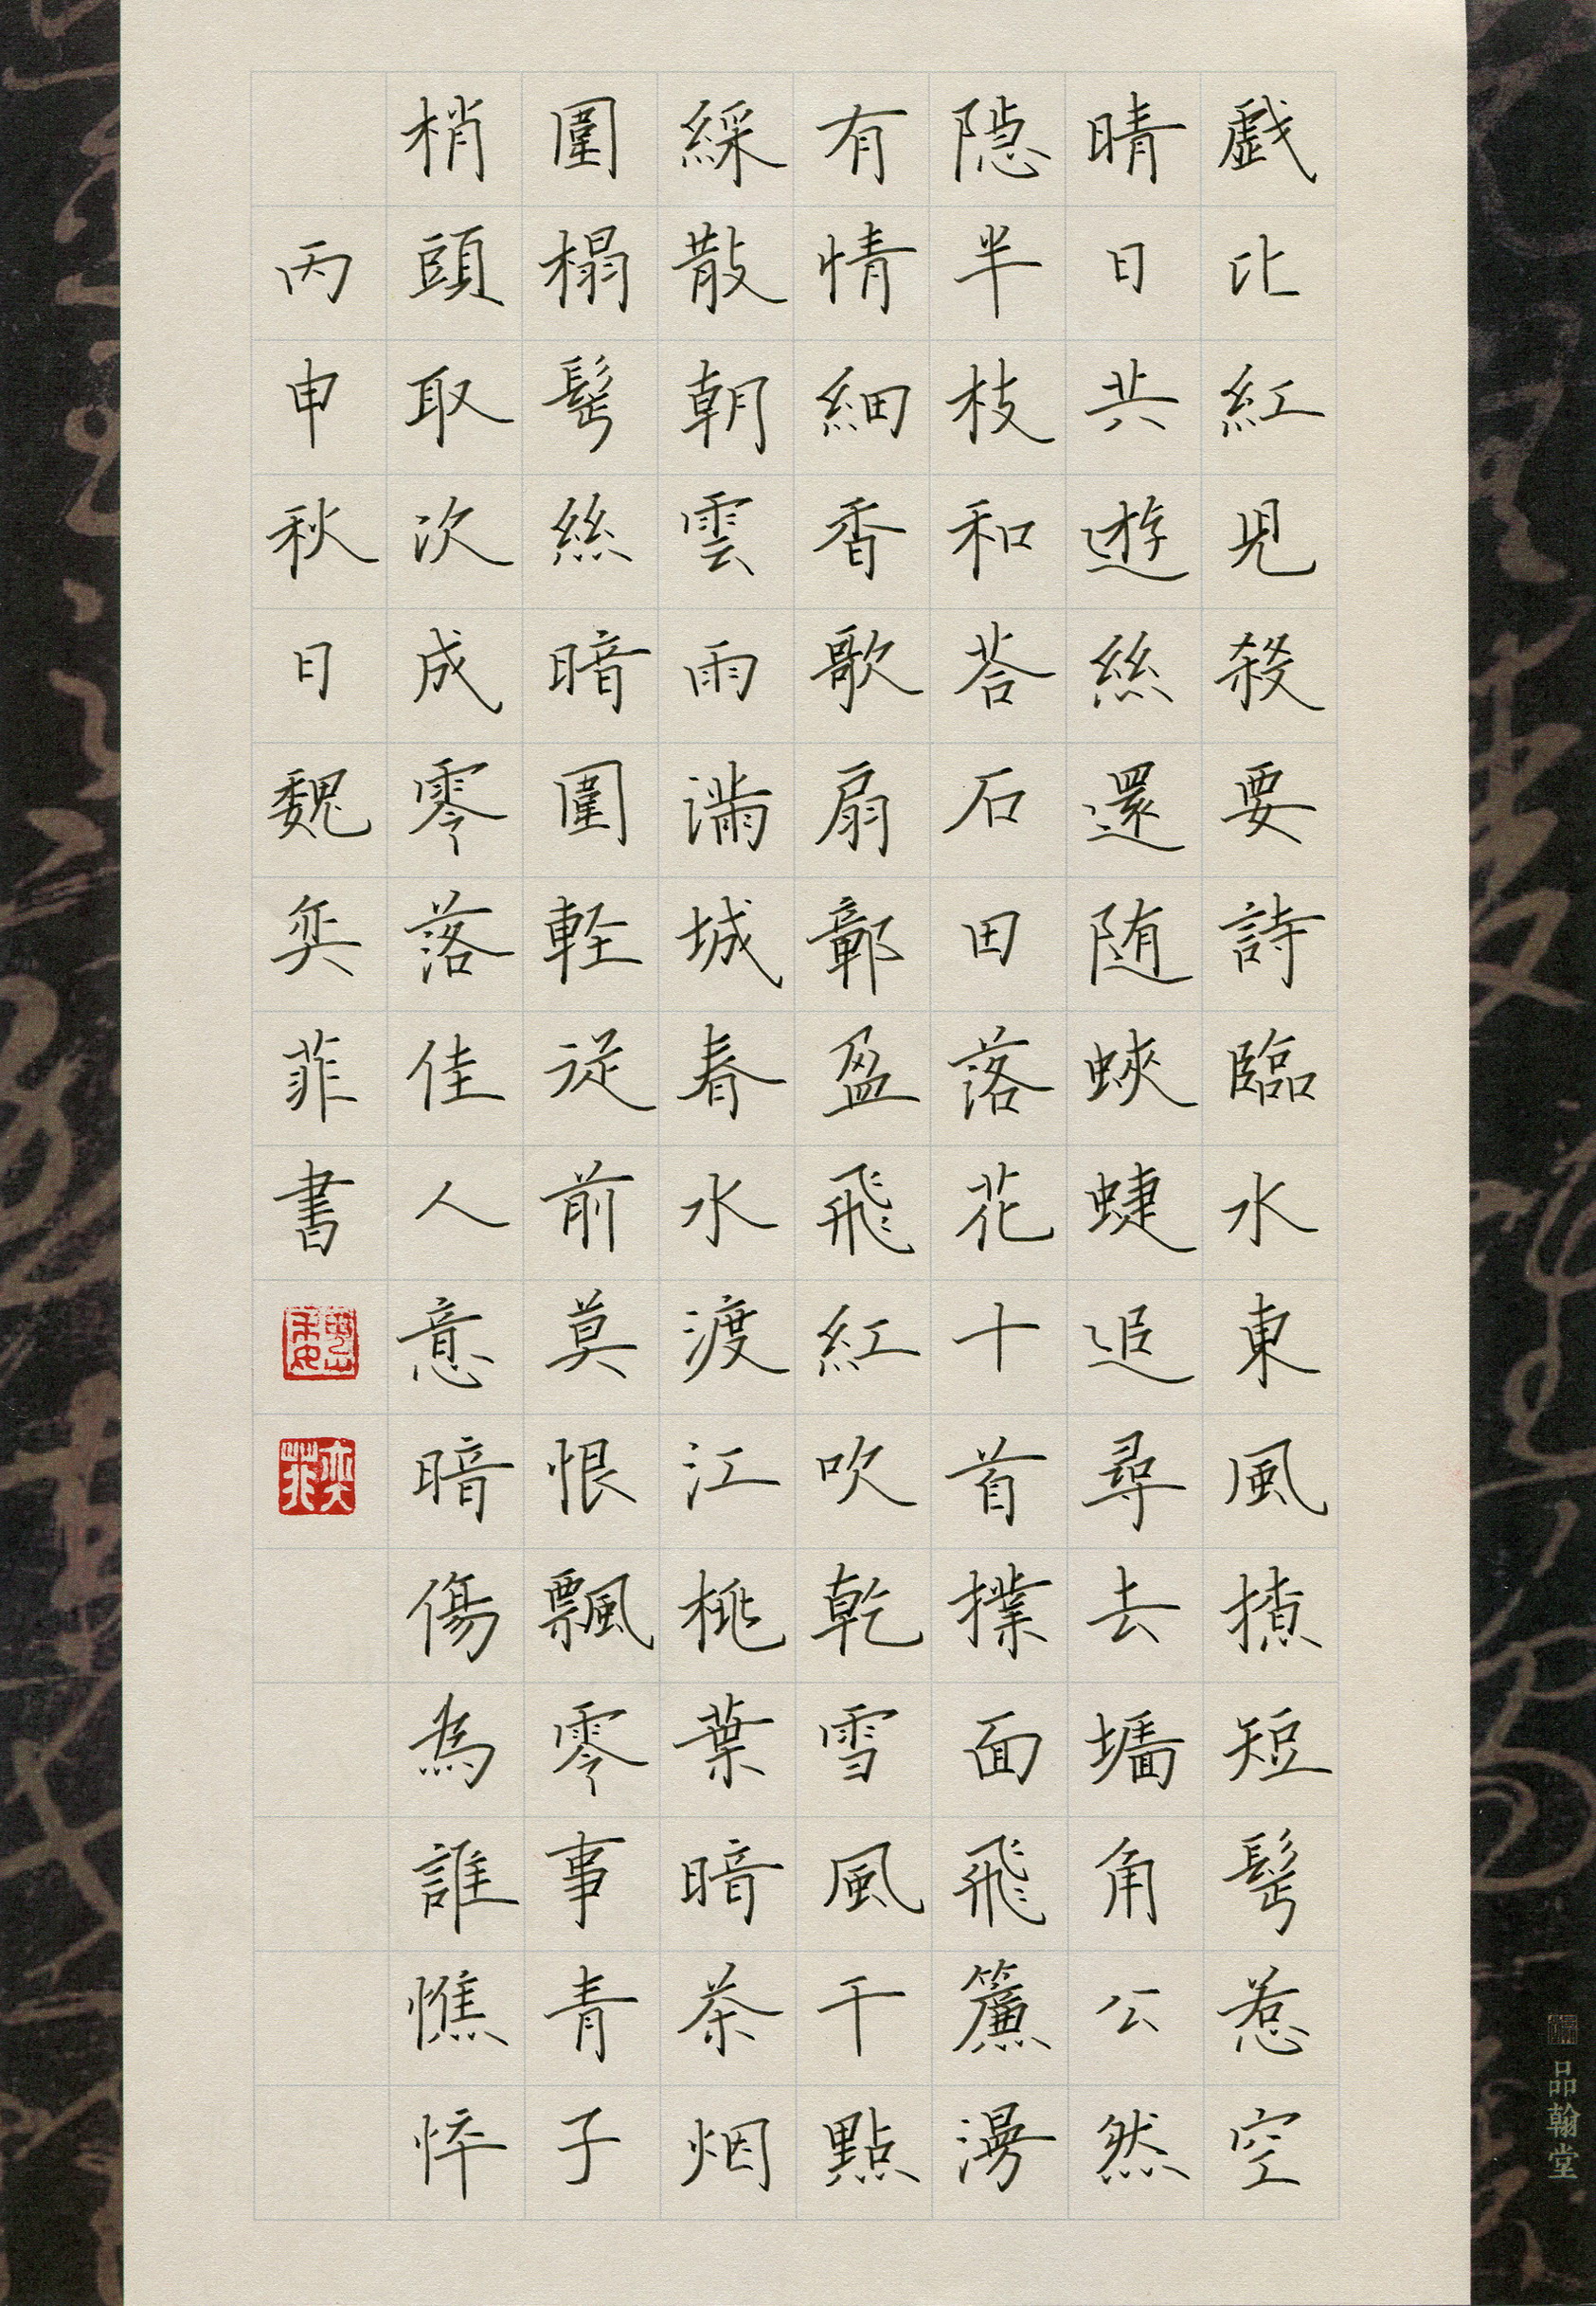 戲比紅兒殺要詩臨水東風撩短髩惹空
晴日共遊絲還随蛺蜨追尋去墻角公然
隱半枝和荅石田落花十首撲面飛簾漫
有情細香歌扇鄣盈盈飛紅吹乾雪風千點
綵散朝雲雨滿城春水渡江桃葉暗茶烟
圍榻髩絲暗圍輕從前莫恨飄零事青子
梢頭取次成零落佳人意暗傷為誰憔悴
丙申秋日魏奕菲書
魏
奕菲
品翰堂